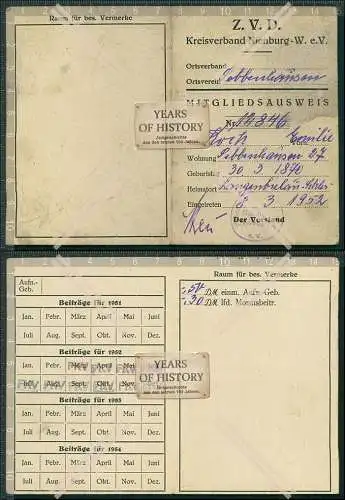 Raum für bes. Vermerke
Z. V. D.
Kreisverband Nienburg-W. e.V.
Ortsverband
Ortsverein Pebbenhausen
MITGLIEDSAUSWEIS
Nr. 12846
Koch Emilie
Wohnung Pebbenhausen 27
Geburtstag 30. 3. 1870
Heimatort Langenbielau Schles.
Eingetreten 3. 1952
Der Vorstand
YEARS
OF HISTORY
Zeitgeschichte
aus den letzten 100 Jahren.
Aufn.-
Geb.
Beiträge für 1951
Jan. Febr. März April Mai Juni
Juli Aug. Sept. Okt. Nov. Dez.
Beiträge für 1952
Jan. Febr. März April Mai Juni
Juli Aug. Sept. Okt. Nov. Dez.
Beiträge für 1953
Jan. Febr. März April Mai Juni
Juli Aug. Sept. Okt. Nov. Dez.
Beiträge für 1954
Jan. Febr. März April Mai Juni
Juli Aug. Sept. Okt. Nov. Dez.
Raum für bes. Vermerke
-.50 DM einm. Aufn.-Geb.
-.30 DM lfd. Monatsbeitr.
YEARS
OF HISTORY
Zeitgeschichte
aus den letzten 100 Jahren.